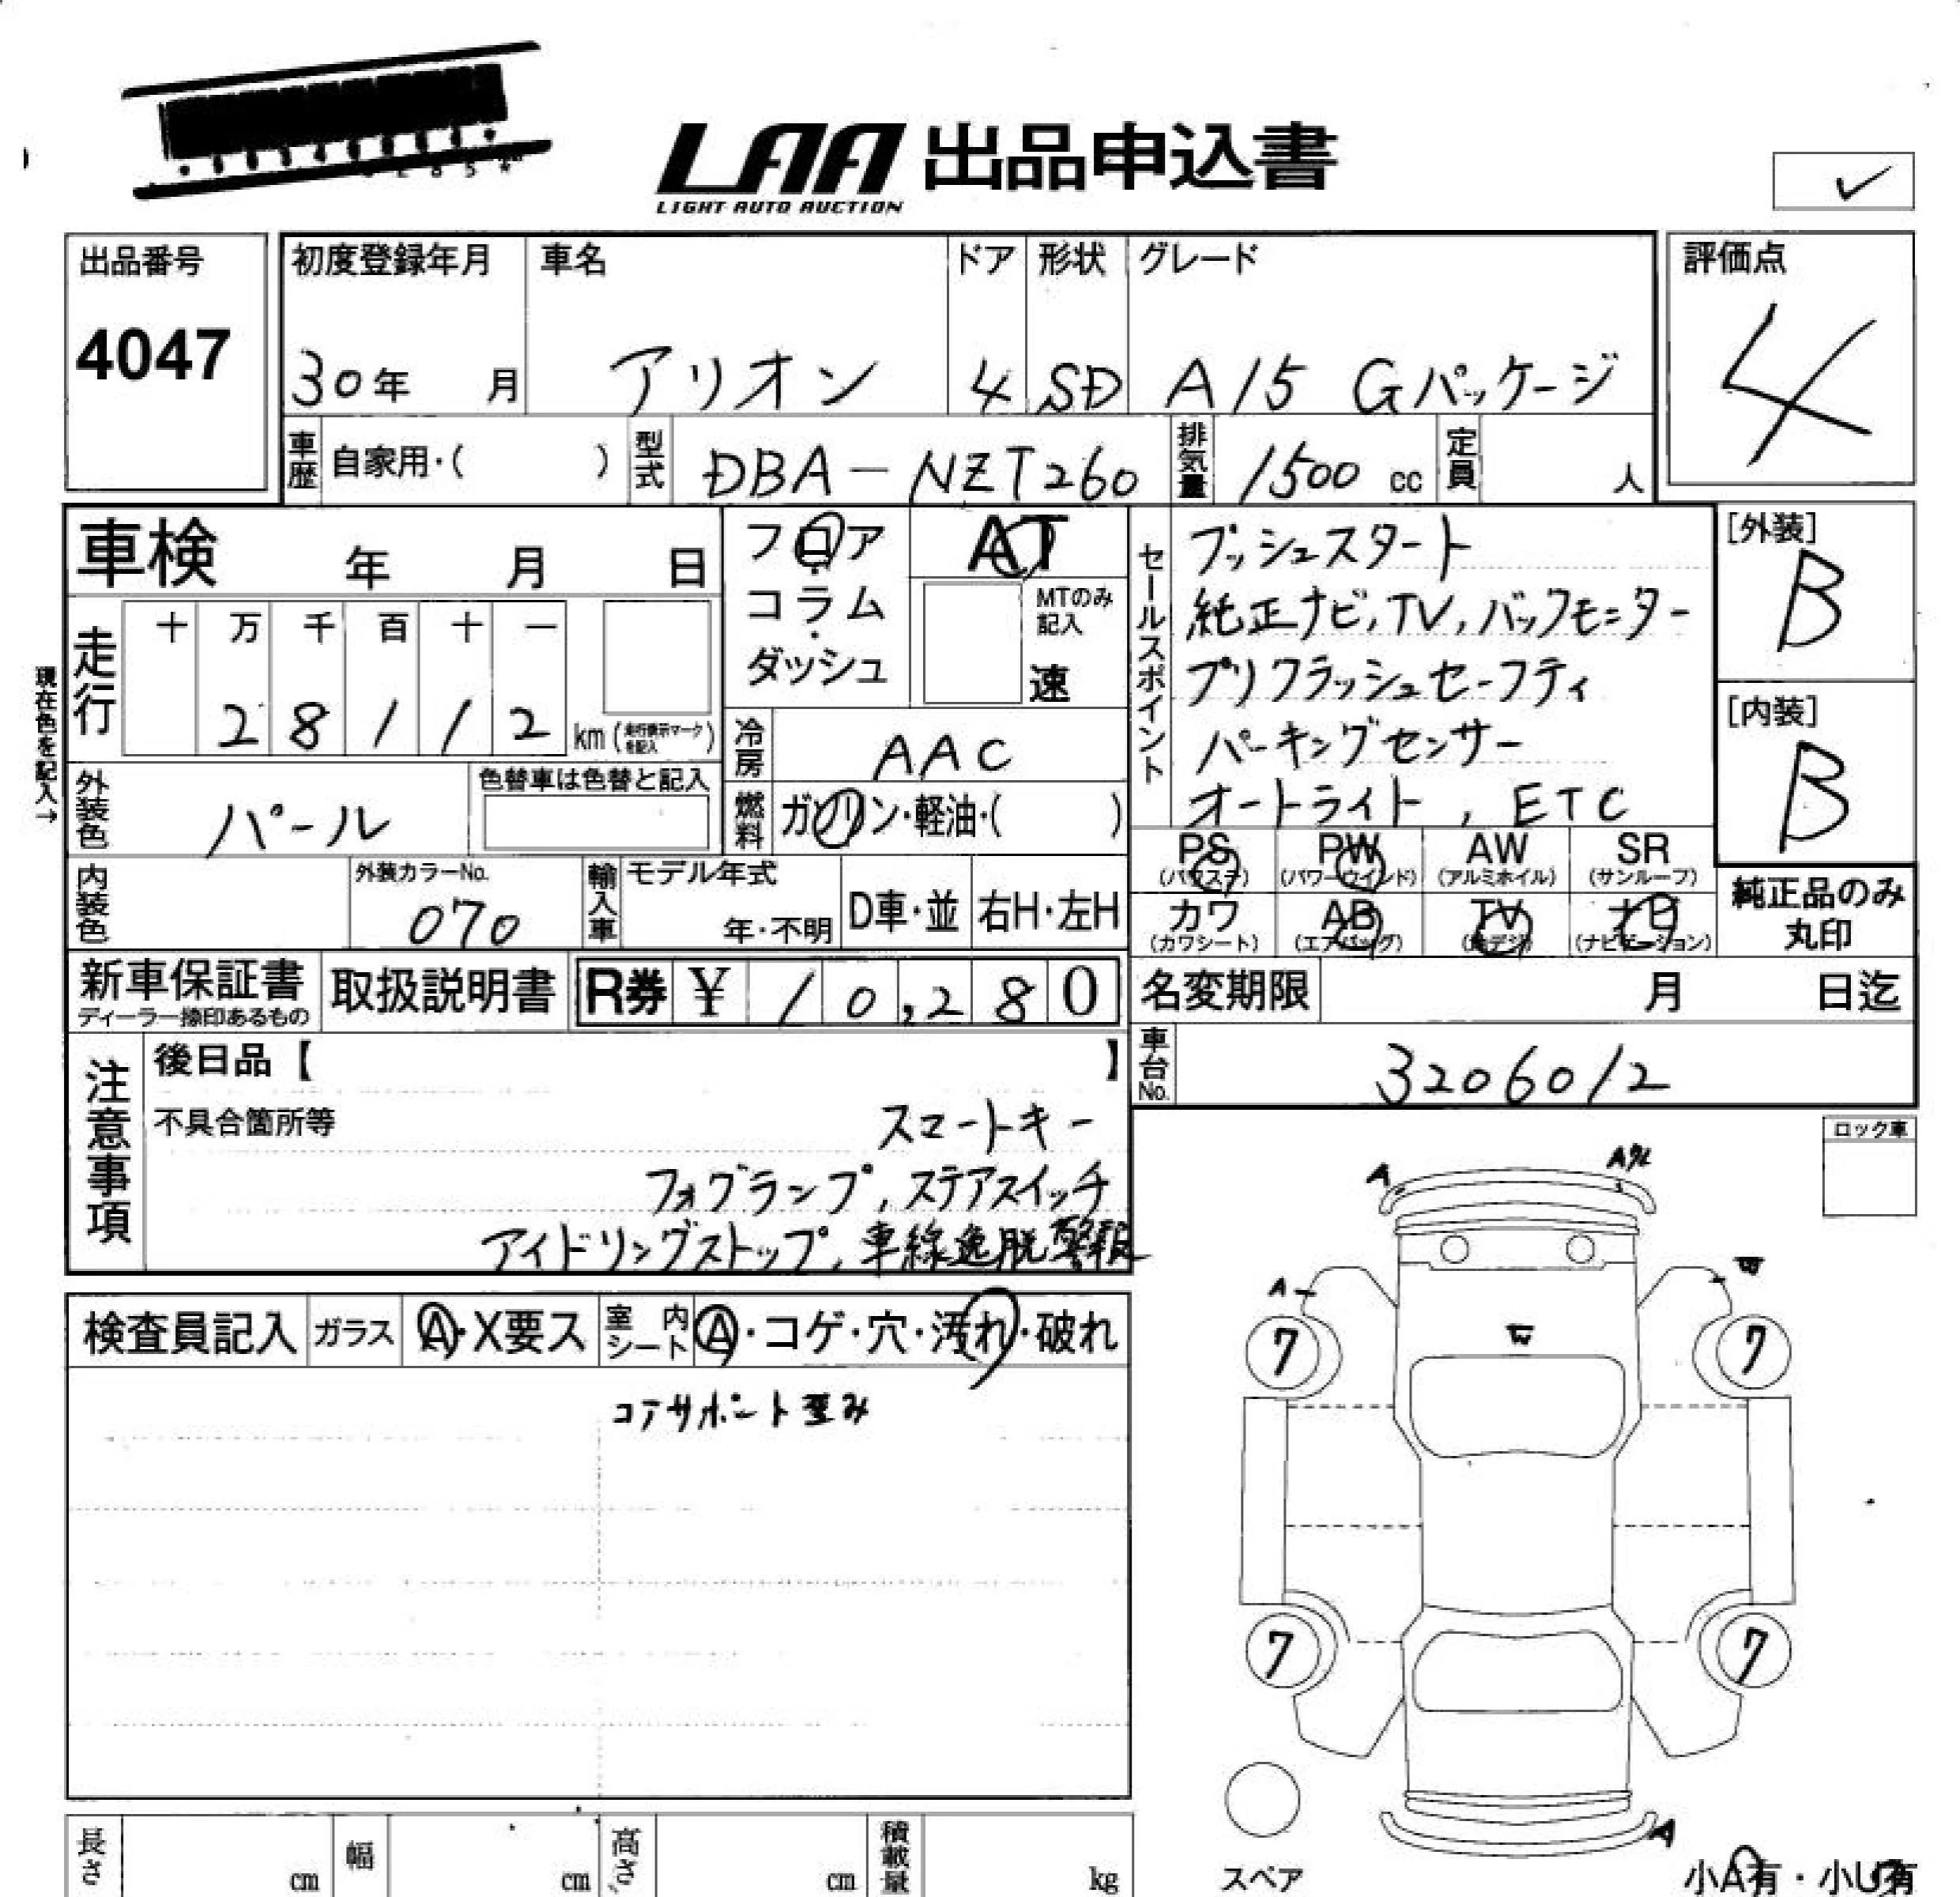 LAA 出品申込書
LIGHT AUTO AUCTION
✓
出品番号
4047
初度登録年月
30年 月
車名
アリオン
ドア
4
形状
SD
グレード
A15 Gパッケージ
評価点
4
車歴 自家用・( )
型式 DBA-NZT260
排気量 1500 cc
定員 人
車検 年 月 日
フロア・コラム・ダッシュ
AT
MTのみ記入
速
セールスポイント
プッシュスタート
純正ナビ, TV, バックモニター
プリクラッシュセーフティ
パーキングセンサー
オートライト, ETC
[外装]
B
[内装]
B
走行
十 万 千 百 十 一
2 8 1 1 2 km (走行表示マークを記入)
現在色を記入→
冷房 AAC
外装色 パール
色替車は色替と記入
燃料 ガソリン・軽油・( )
PS (パワステ) PW (パワーウインド) AW (アルミホイル) SR (サンルーフ)
カワ (カワシート) AB (エアバッグ) TV (地デジ) ナビ (ナビゲーション)
純正品のみ丸印
内装色
外装カラーNo.
070
輸入車 モデル年式
年・不明
D車・並 右H・左H
新車保証書
ディーラー捺印あるもの
取扱説明書
R券 ¥ 10,280
名変期限 月 日迄
車台No. 3206012
注意事項
後日品【 】
不具合箇所等
スマートキー
フォグランプ, ステアスイッチ
アイドリングストップ, 車線逸脱警報
ロック車
検査員記入 ガラス A・X要ス 室内シート A・コゲ・穴・汚れ・破れ
コアサポート歪み
A
A
W
W
7 7
7 7
A
スペア
小A有・小U有
長さ cm 幅 cm 高さ cm 積載量 kg